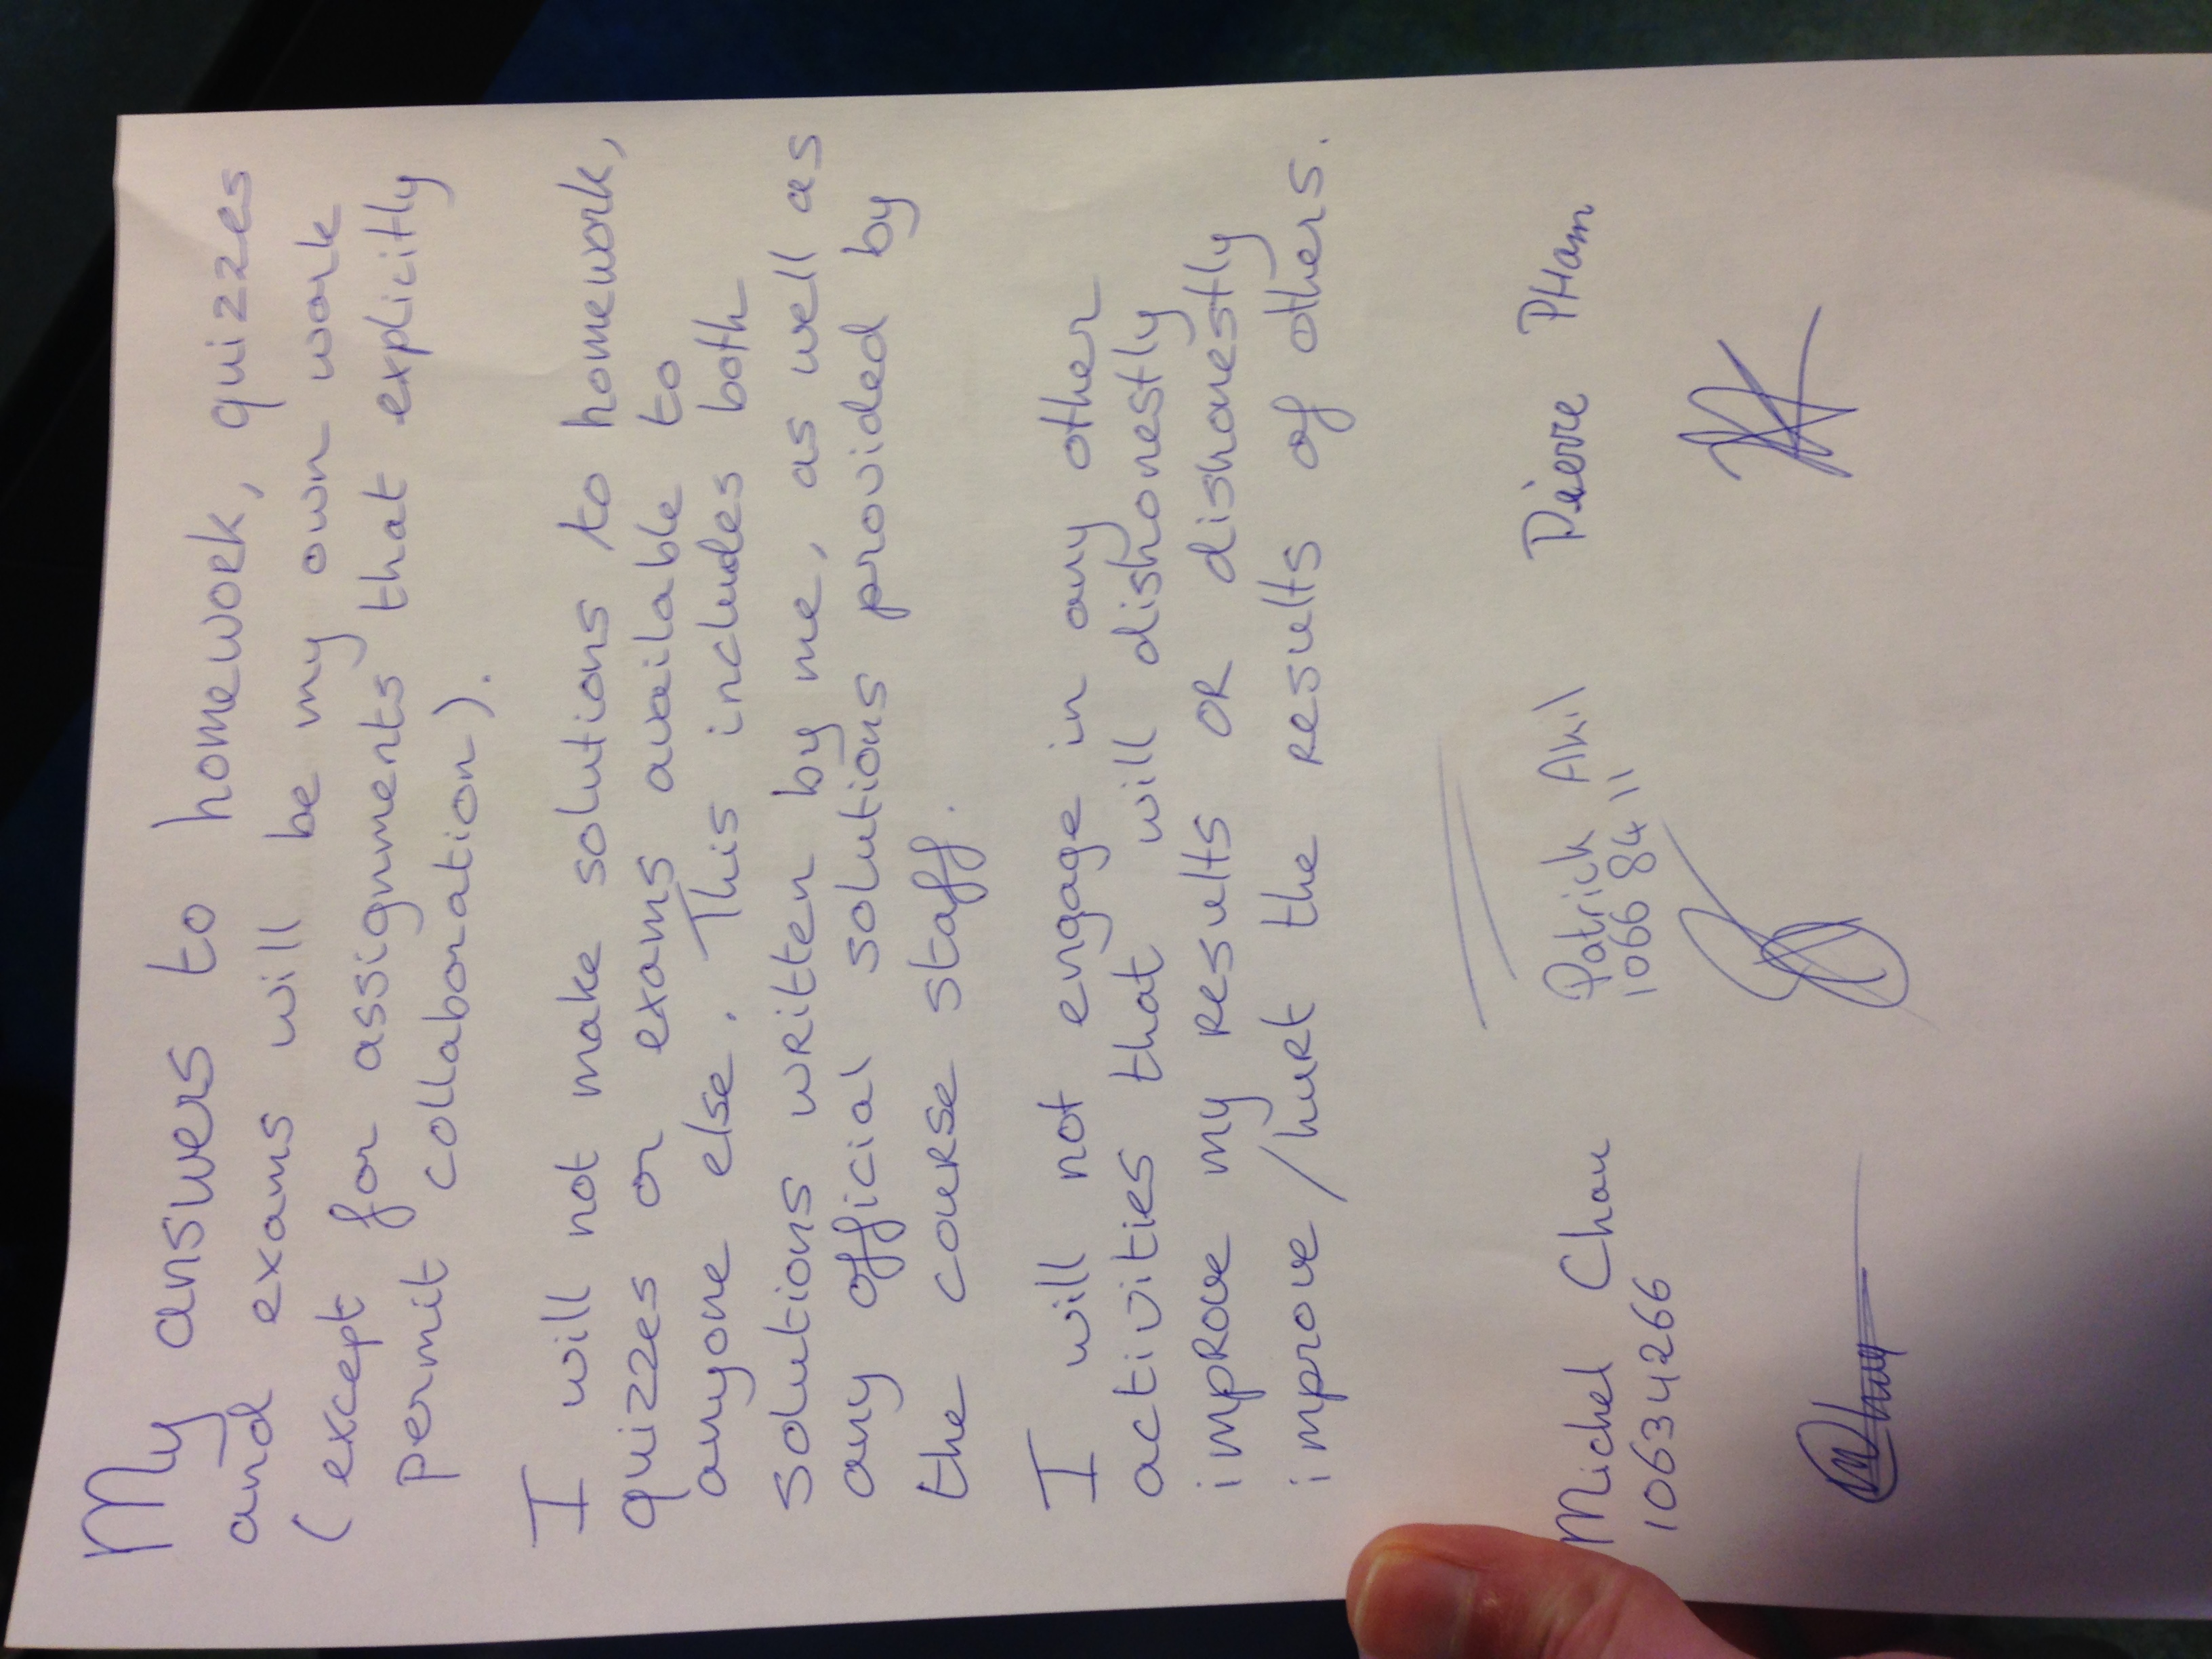 My answers to homework, quizzes
and exams will be my own work
(except for assignments that explicitly
permit collaboration).
I will not make solutions to homework,
quizzes or exams available to
anyone else. This includes both
solutions written by me, as well as
any official solutions provided by
the course staff.
I will not engage in any other
activities that will dishonestly
improve my results OR dishonestly
improve/hurt the results of others.
Michel Chau Patrick Akil Pierre PHam
10634266 1066 84 11